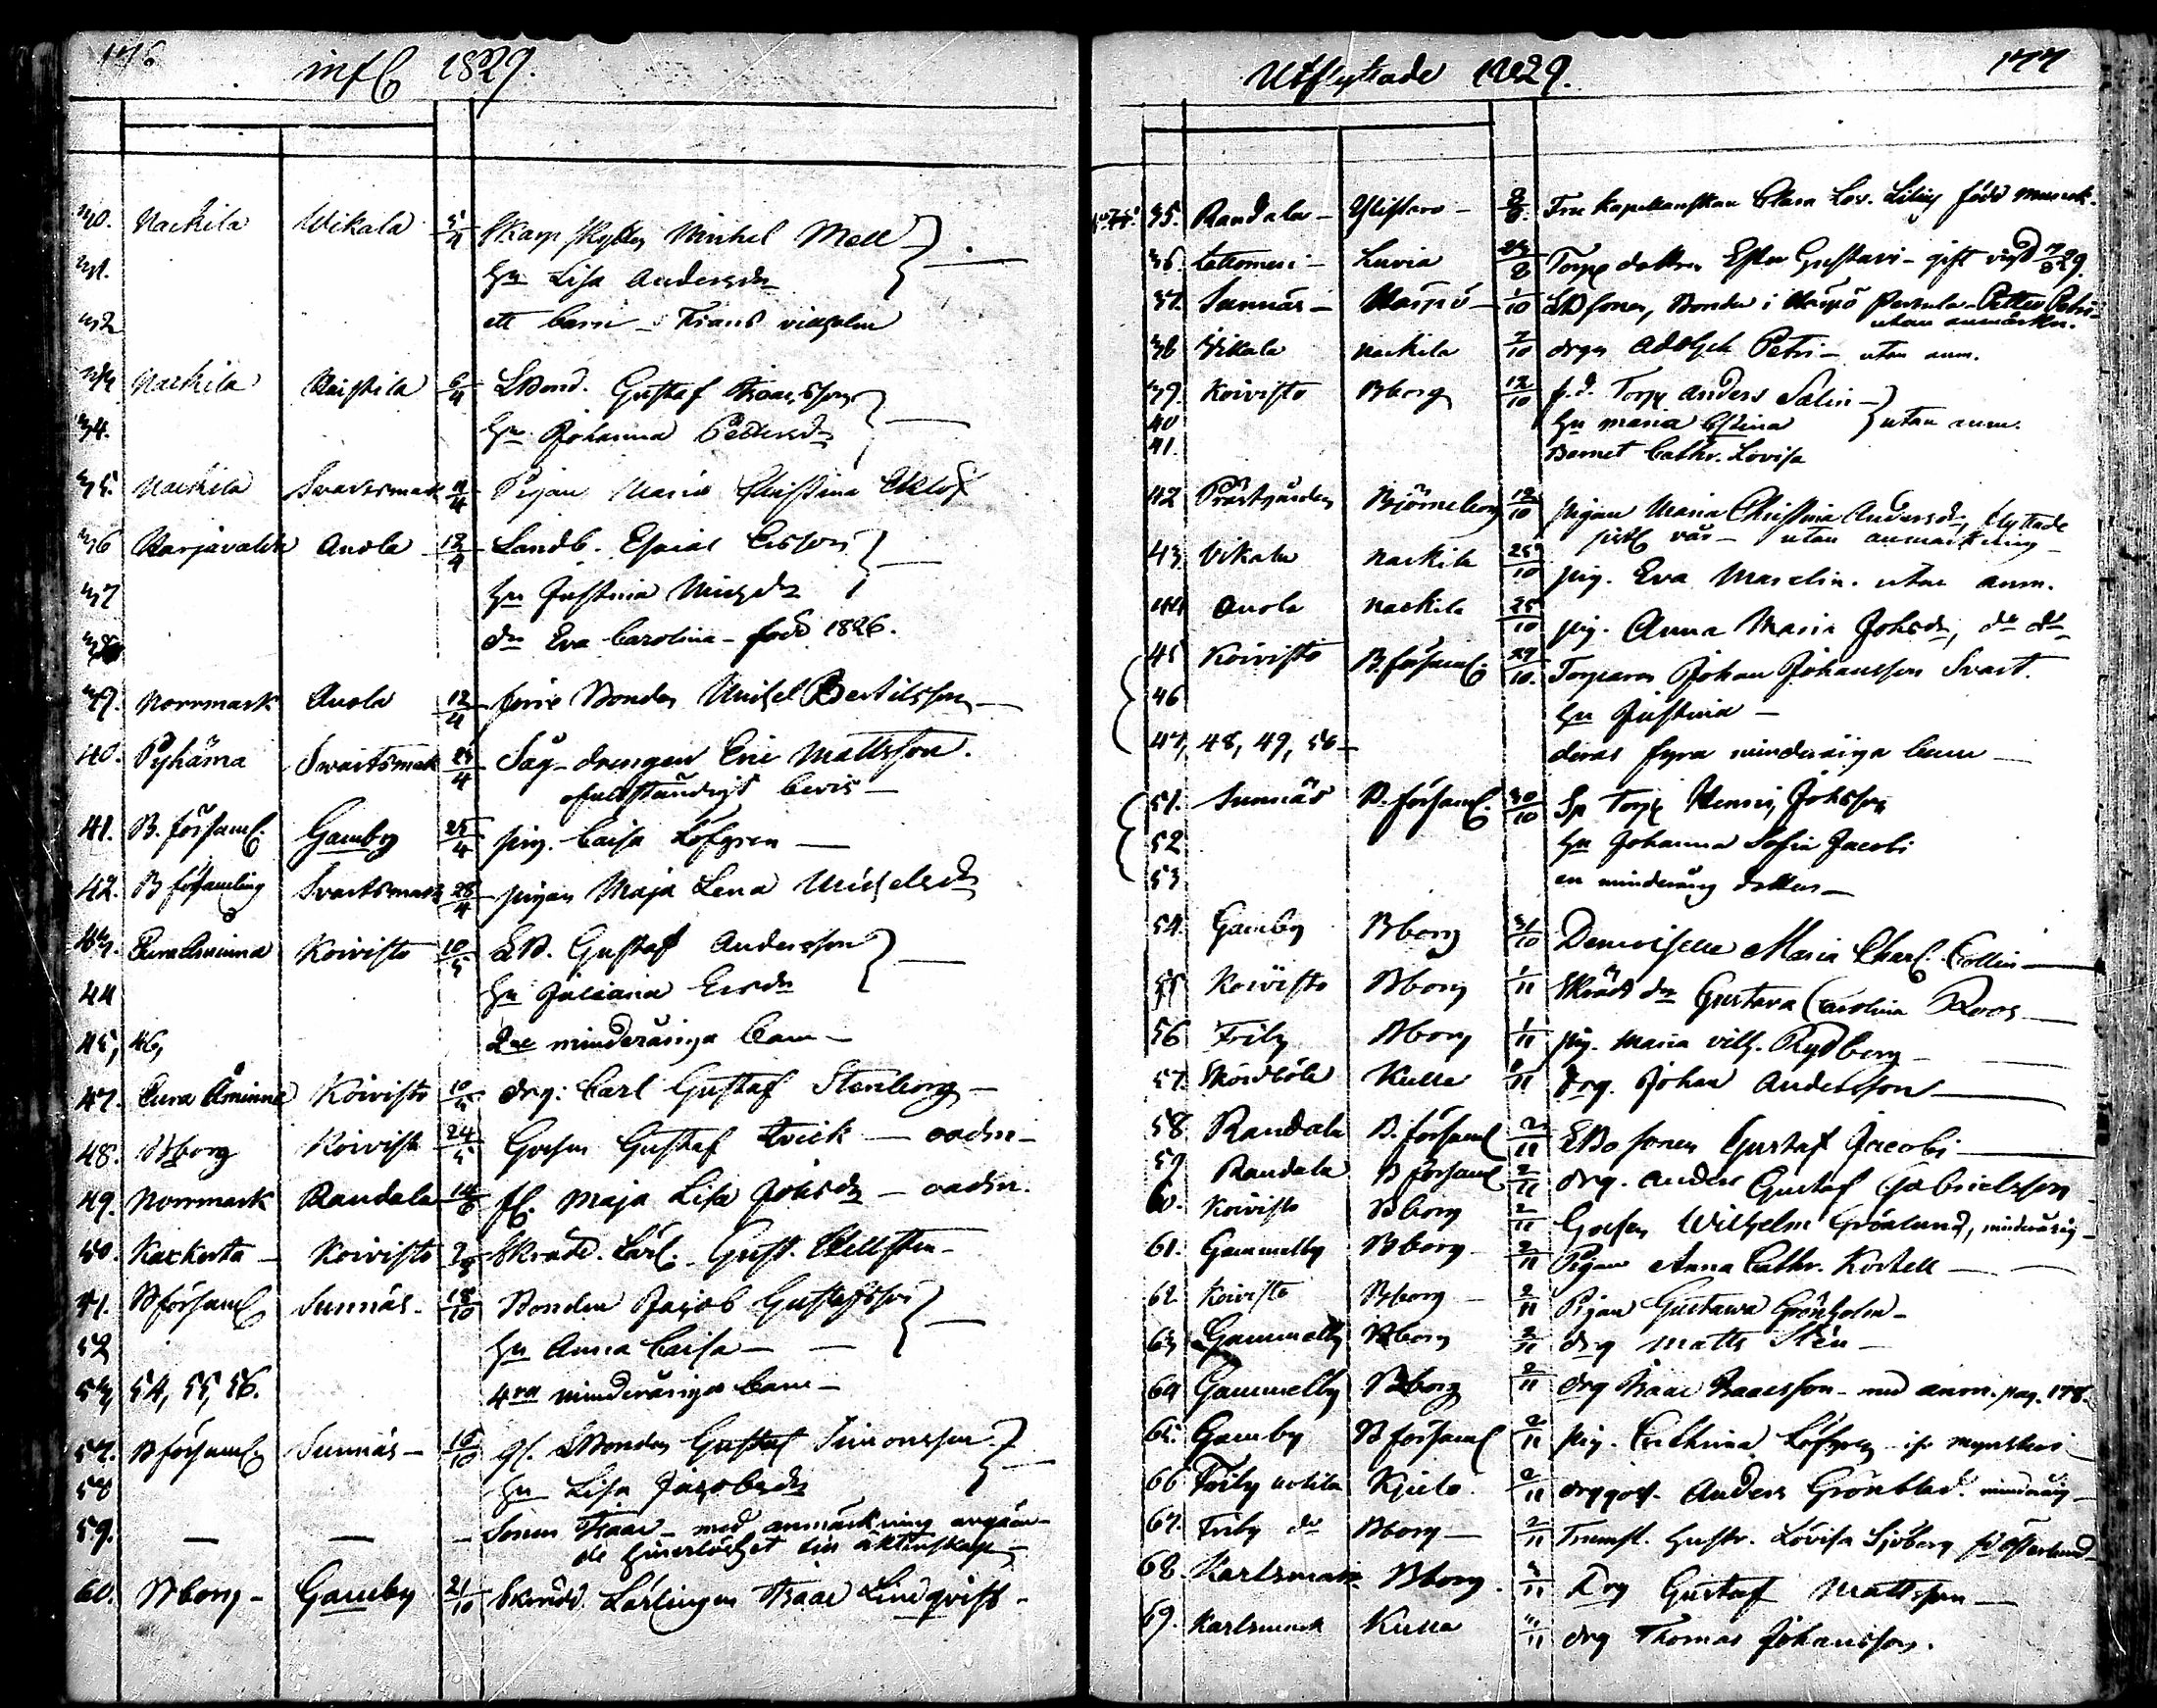 176
infl 1829.
30. Nackila Wikala 5/4 Skarp skytten Michel Mell
31. Hu Lisa Andersdr
32 ett barn Frans
33 Nackila Raistila 6/4 LBond. Gustaf Isaacsson
34. Hu Johanna Pettersdr
35. Nackila Svartsmark 11/4 Pigan Maria Christina Eklöf
36 Harjavalda Anola 12/4 Landb. Esaias Ersson
37 Hu Justina Michdr
38 dr Eva Carolina – född 1826.
39. Norrmark Anola 12/4 förre Bonden Michel Bertilsson
40. Pyhäma Swartsmark 25/4 Såg-drengen Eric Mattsson.
ofullständigt bevis –
41. B. församl. Gamby 25/4 pig. Caisa Löfgren –
42. B församling Svartsmark 28/4 pigan Maja Lena Michelsdr
43. Eura Åminna Koivisto 10/5 LB. Gustaf Andersson
44 Hu Juliana Ersdr
45, 46, 2ne minderåriga barn –
47. Eura Åminne Koivisto 10/5 drg. Carl Gustaf Stenborg –
48. Bborg Koivisto 24/5 Gossen Gustaf Qvick – oadm –
49. Norrmark Randala fl. Maja Lisa Johsdr – oadm.
50. Koivisto Skrädd. Lärl. Gust. Hellsten –
51. B församl Sunnäs 18/10 Bonden Jacob Gustafsson
52 Hu Anna Caisa –
53, 54, 55, 56. 4ra minderåriga barn –
57. B församl Sunnäs – 18/10 gl. LBonden Gustaf Simonsson
58 Hu Lisa Jacobsdr
59. – – – Sonen Isaac – med anmärkning angåen-
de hinerlöshet till äktenskap –
60. Bborg – Gamby 21/10 Skrädd. Lärlingen Isaac Lindqvist –
Utflyttade 1829.
177
35. Randala – Ylistaro – Fru Kapellanskan Clara Lov. Lilius född
36. Lattomeri – Luvia Torpe dottren Ester Gustavi – gift
37. Sunnäs – Kaspö – 1/10 LB sonen, Bonden i Petter Petri –
utan anmärkn.
38 Vikala Nackila 7/10 drgn Adolph Petri – utan anm.
39. Koivisto Bborg 12/10 f.d. Torp Anders Salin –
40 Hu Maria Stina utan anm.
41. Barnet Cathr. Lovisa
42 Prästgården Björneborg 12/10 pigan Maria Christina Andersdr, flyttade
sistl. vår – utan anmärkning –
43 Vikala Nackila 25/10 pig. Eva Marelin. utan anm.
44 Anola Nackila 25/10 pig. Anna Maria Johsdr, do do
45 Koivisto B. församl. 29/10. Torparen Johan Johansson Svart.
46 Hu Justina –
47, 48, 49, 50 – deras fyra minderåriga barn –
51. Sunnäs B. församl. 30/10 Sp Torp Henric Johsson
52 Hu Johanna Sofia Jacobi
53 en minderårig dotter –
54. Gamby Bborg 31/10 Demoiselle Maria Charl. Collin –
55 Koivisto Bborg 1/11 Skrädd dr Gustava Carolina Roos –
56 Friby Bborg 1/11 pig. Maria Vilh. Rydberg –
57. Kulla drg. Johan Andersson –
58 Randala B. församl 2/11 LBo sonen Gustaf Jacobi –
59 Randala B församl 2/11 drg. Anders Gustaf Gabrielsson
60. Koivisto Bborg 2/11 Gossen Wilhelm Grönlund, minderårig –
61. Gammelby Bborg 2/11 Pigan Anna Cathr. Kortell –
62 Koivisto Bborg – 2/11 Pigan Gustawa Grönholm –
63 Gammelby Bborg 2/11 drg Matts Sten –
64 Gammelby Bborg 2/11 drg Isaac Isaacsson – med anm. pag. 178.
65. Gamby B församl 2/11 pig. Cathrina Löfgren
66 Friby Kjulo. 2/11 Anders Grönblad. minderårig –
67. Friby do Bborg – 2/11 Hustr. Lovisa Sjöberg
68. Karlsmark Bborg. Drg Gustaf Mattsson –
69. Karlsmark Kulla drg Thomas Johansson.